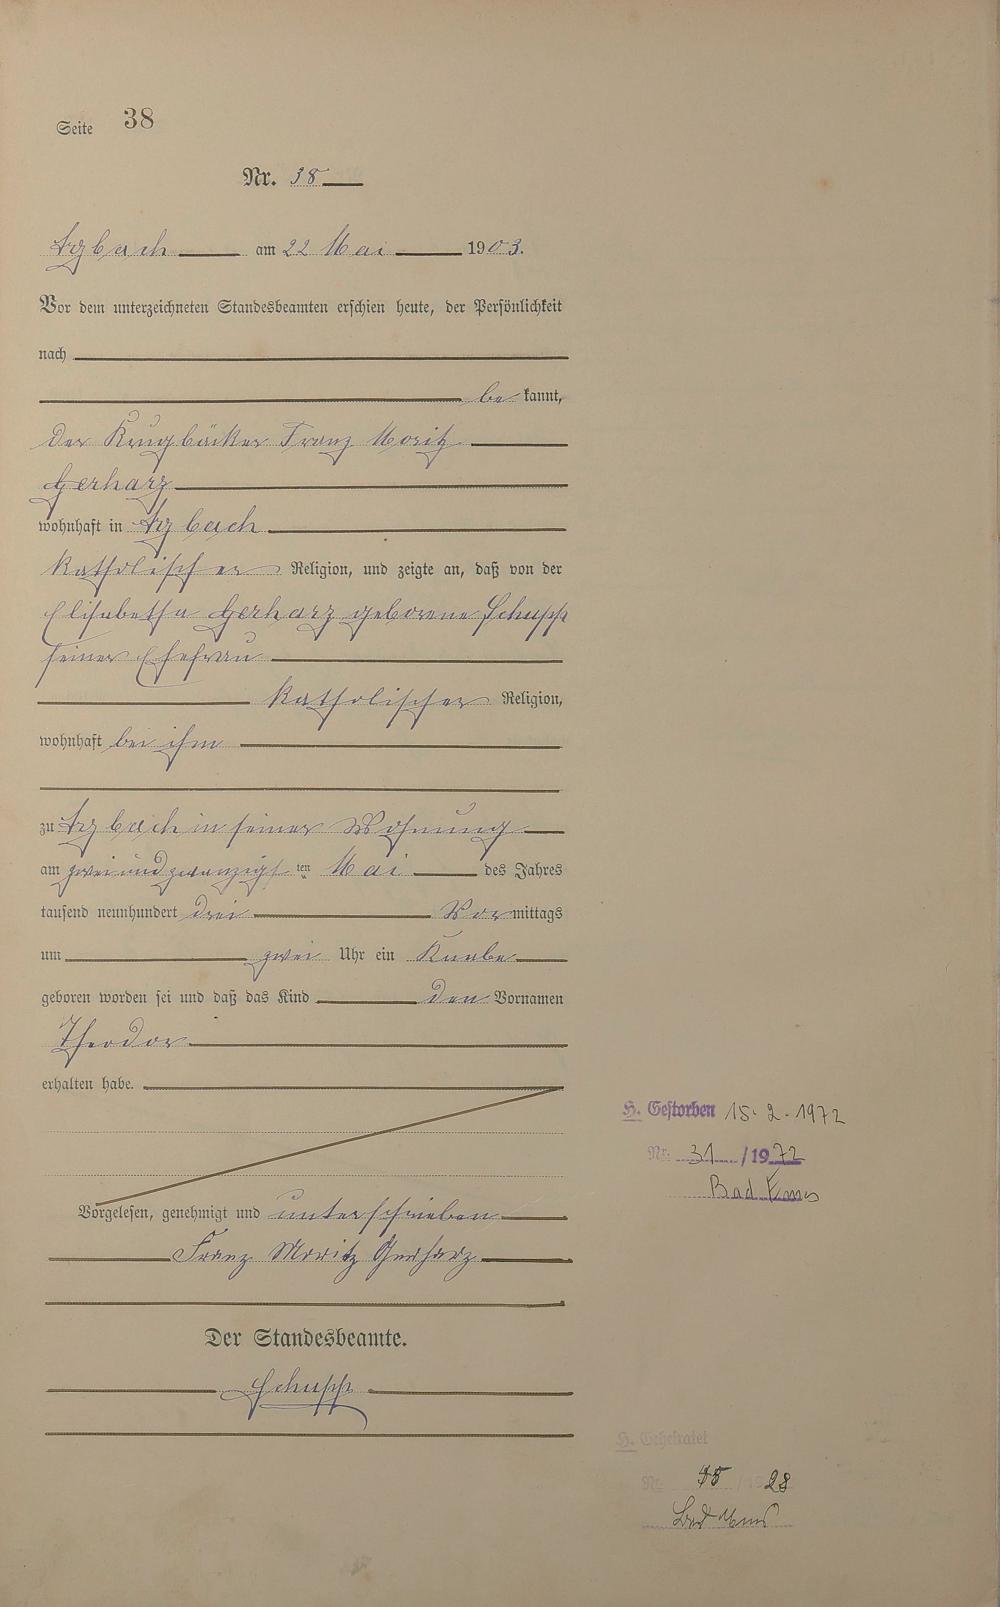 Seite 38
Nr. 38
Arzbach am 22 Mai 1903.
Vor dem unterzeichneten Standesbeamten erschien heute, der Persönlichkeit
nach
be kannt,
der Krugbäcker Franz Moritz
Gerharz
wohnhaft in Arzbach
katholischer Religion, und zeigte an, daß von der
Elisabetha Gerharz geborene Schupp
seiner Ehefrau
katholischer Religion,
wohnhaft bei ihm
zu Arzbach in seiner Wohnung
am zwei und zwanzigsten Mai des Jahres
tausend neunhundert drei Vormittags
um zwei Uhr ein Knabe
geboren worden sei und daß das Kind den Vornamen
Theodor
erhalten habe.
H. Gestorben 15.2.1972
Nr. 31 /1972
Bad Ems
Vorgelesen, genehmigt und unterschrieben
Franz Moritz Gerharz
Der Standesbeamte.
Schupp
H. Geheiratet
Nr. /1928
Bad Ems